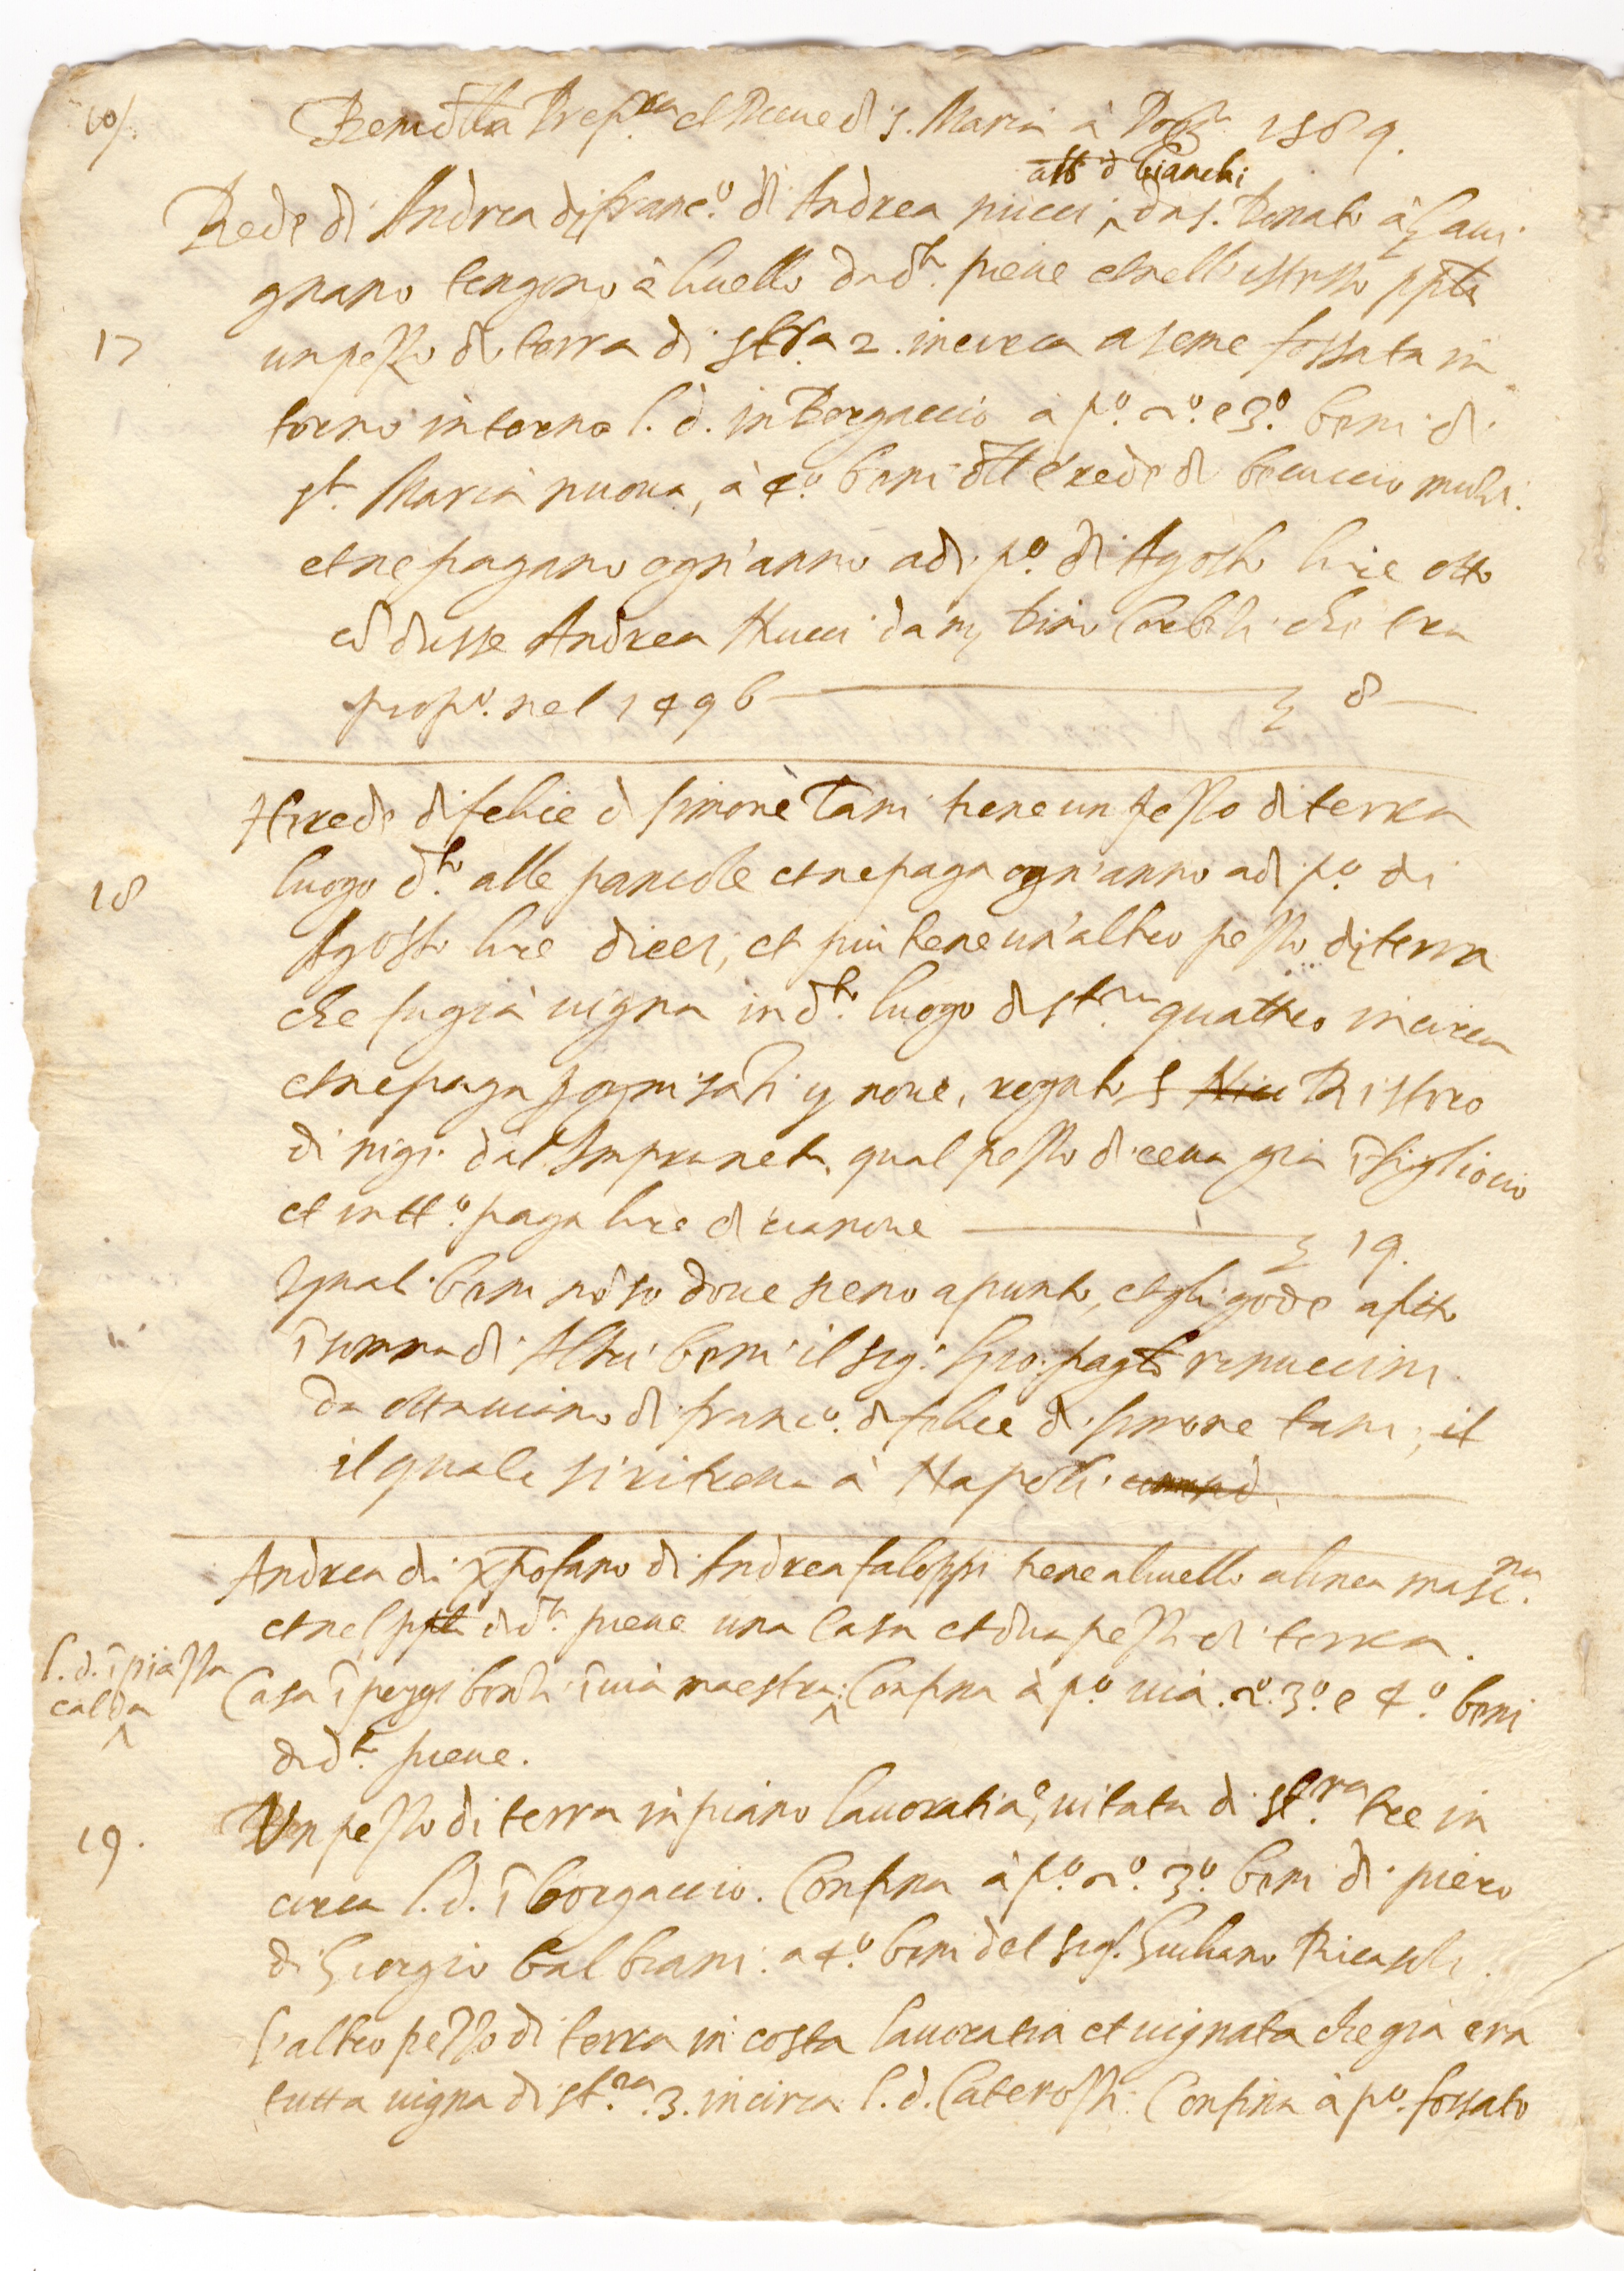 Beni d̄lla Prep.ra et Pieve di S. Maria à Pogg. 1589.
atto d Bianchi
Rede di Andrea di franc.o di Andrea nucci da S. Donato à
gnano tengono à livello da d.ta pieve et nell istesso
17
un pezzo di terra di st.ra 2. incirca a seme fossata in
torno intorno l. d. in Borgaccio à p.o 2.o e 3.o beni di
S.ta Maria nuova, à 4.o beni d̄lle rede di becuccio
et ne pagano ogn'anno adi p.o di Agosto lire otto
cō dusse Andrea Nucci da che era
prop.o nel 1496 8
Herede di felice d simone Tani tiene un pezzo di terra
18
luogo d.to alle pancole et ne paga ogn'anno adi p.o di
Agosto lire dieci, et più tiene un'altro pezzo di terra
che fu già vigna in d.to luogo di st.ra quattro incirca
et ne paga nove, rogato S Nic Ristoro
di nigi dal'Impruneta, qual pezzo diceva già
et in tt.o paga lire dicianove 19.
I quali beni nō so dove sieno apunto, et gli gode afitto
ī somma di Altri beni il sig. rinuccini
da ottaviano di franc.o di felice di simone tani, il
il quale si ritrova à Napoli
Andrea di Xpofano di Andrea falossi tiene a livello a linea masc.na
et nel di d.ta pieve una Casa et dua pezzi di terra.
l. d. ī piazza
calda
Casa ī poggibonzi ī via maestra: Confina à p.o via. 2.o 3.o e 4.o beni
di d.ta pieve.
19.
Un pezzo di terra in piano lavoratia e, vitata di st.ra tre in
circa l. d. ī borgaccio. Confina à p.o 2.o 3.o beni di piero
di Giorgio balbiani. a 4.o beni del sig. Giuliano Ricasoli.
L'altro pezzo di terra in costa lavoratia et vignata che già era
tutta vigna di st.ra 3. incirca l. d. Caterozzi. Confina à p.o fossato